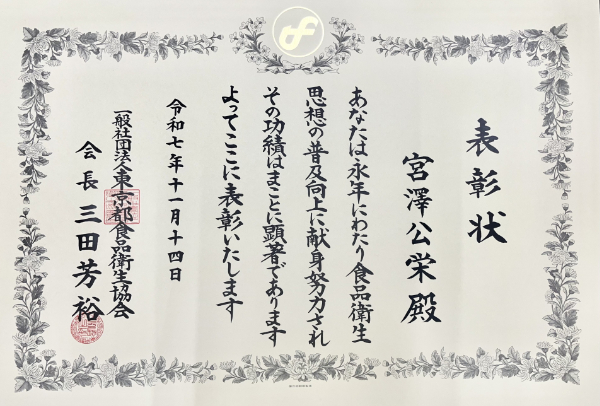 表彰状
宮澤公栄殿
あなたは永年にわたり食品衛生
思想の普及向上に献身努力され
その功績はまことに顕著であります
よってここに表彰いたします
令和七年十一月十四日
一般社団法人東京都食品衛生協会
会長 三田芳裕